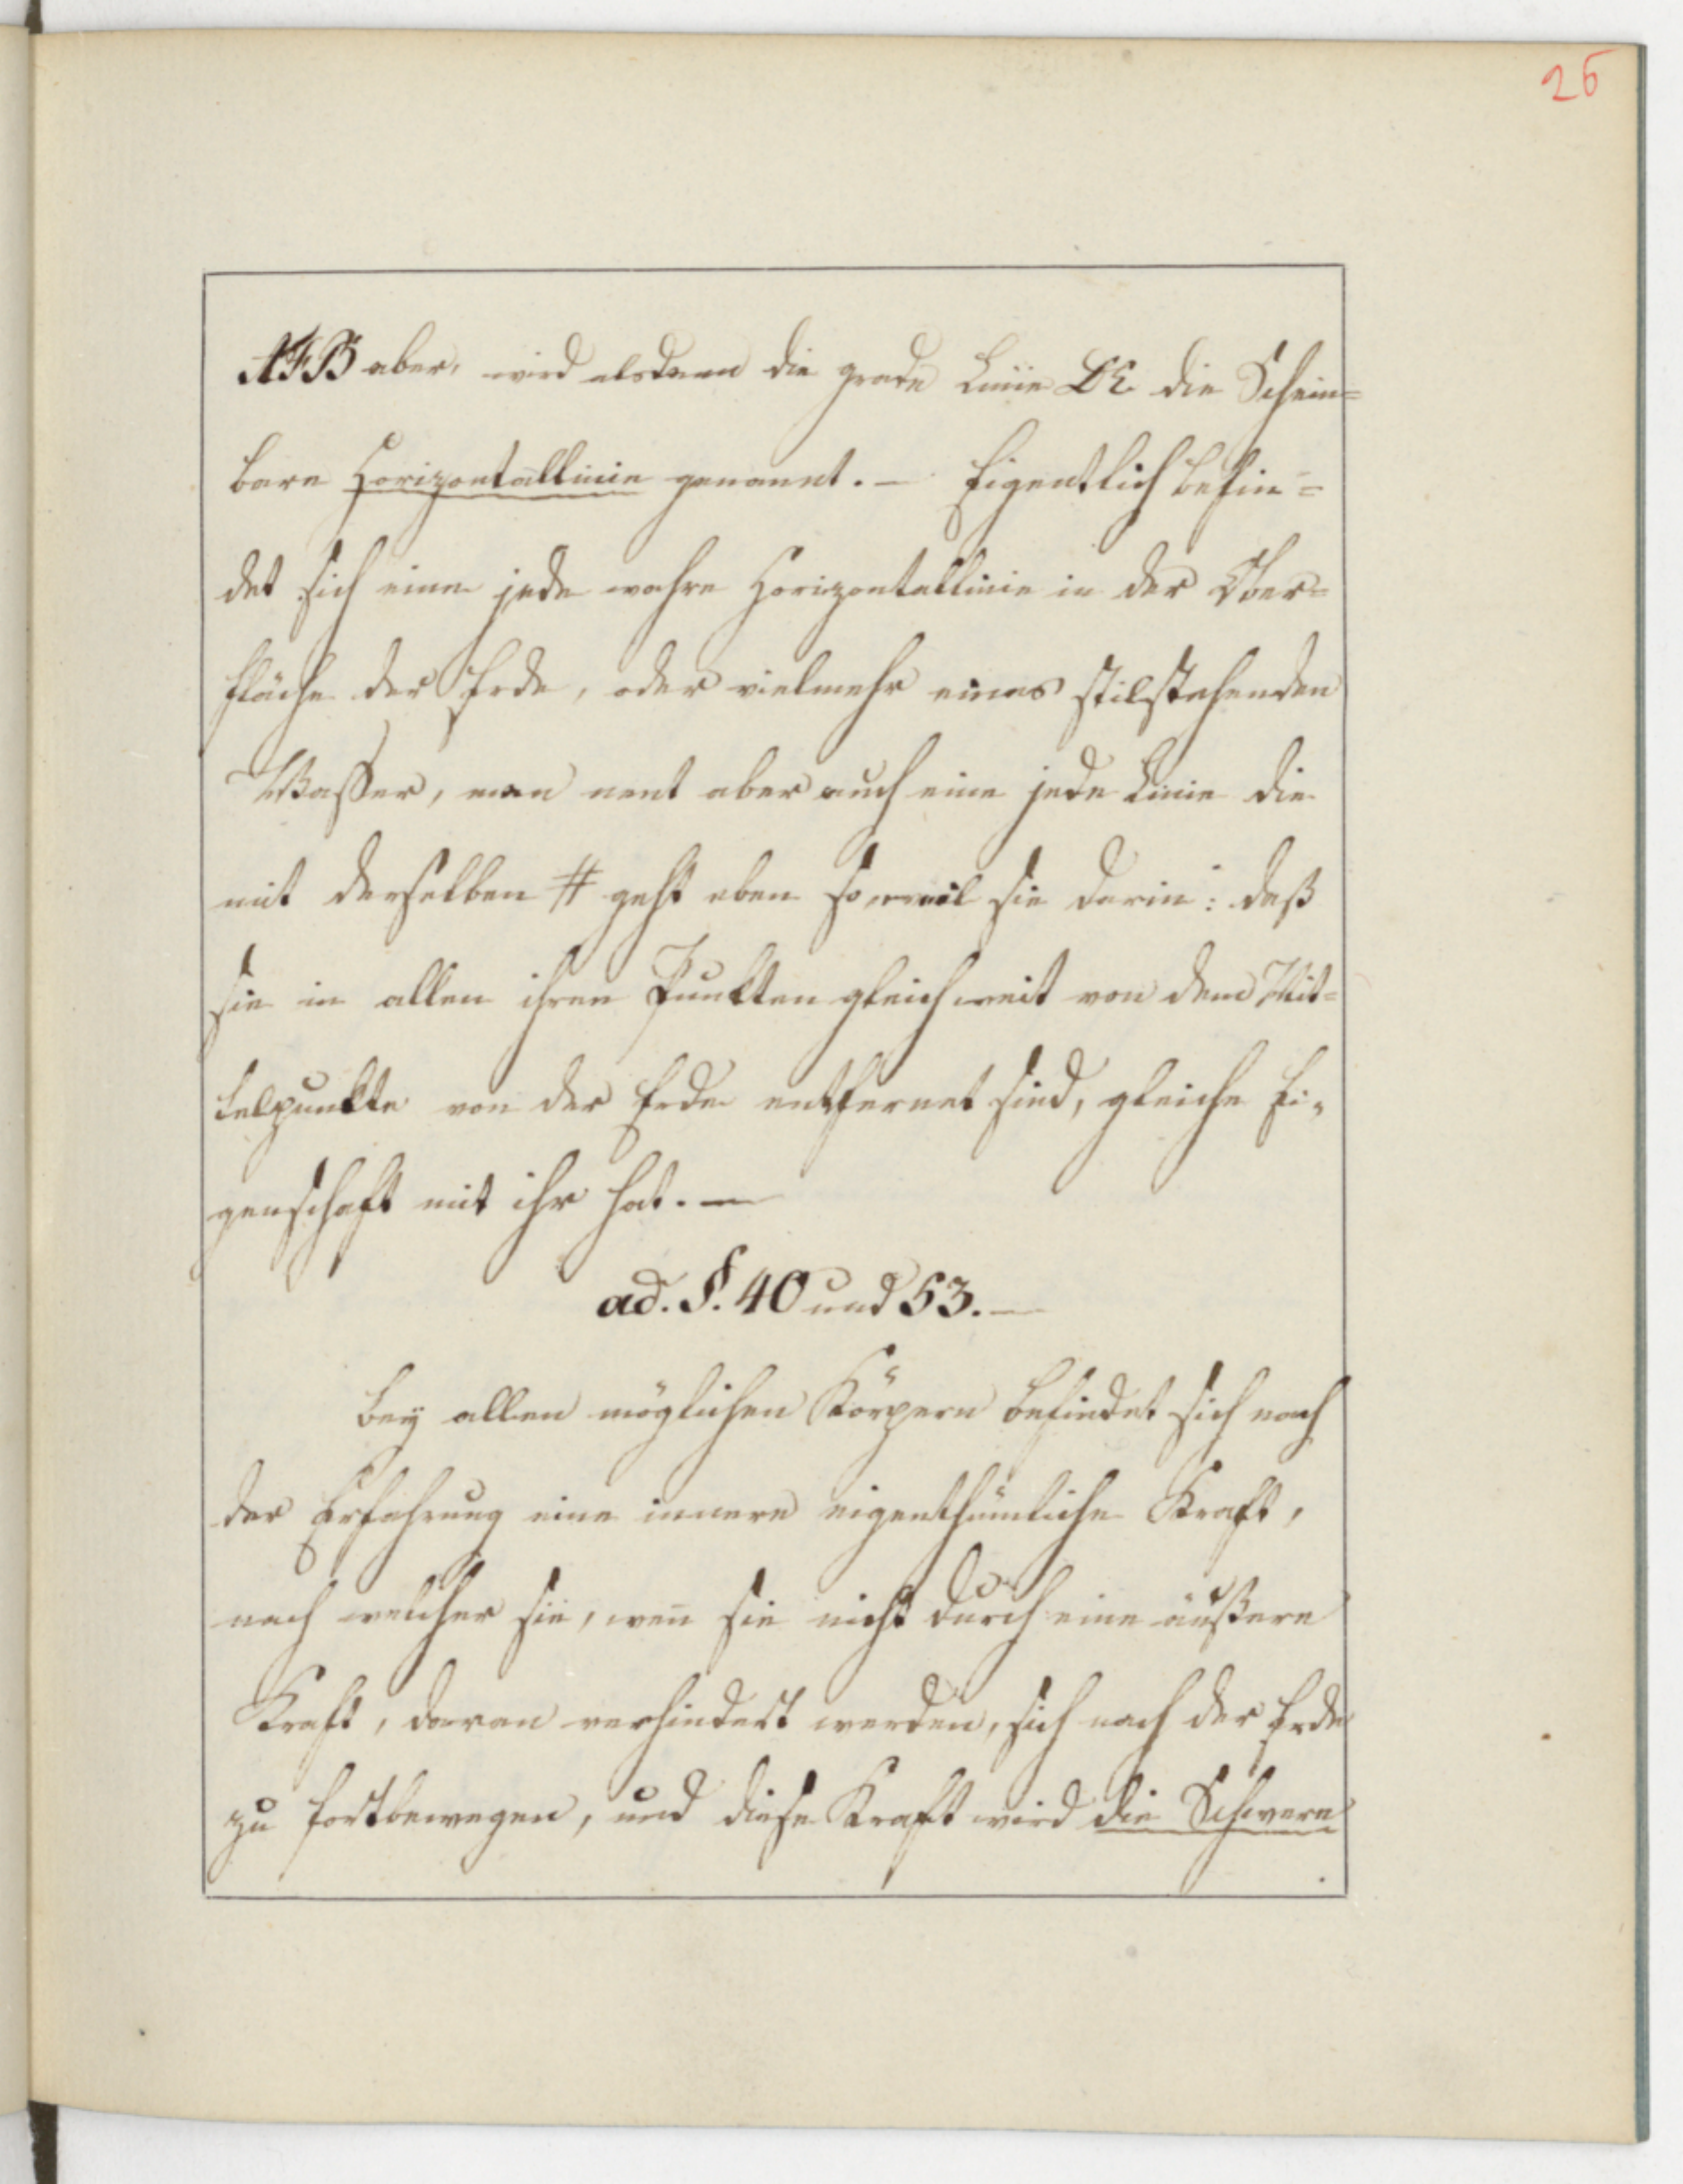 26
AFB aber, wird alsdann die grade Linie DE die Schein=
bare Horizontallinie genannt. — Eigentlich befin=
det sich eine jede wahre Horizontallinie in der Ober=
fläche der Erde, oder vielmehr eines stilstehenden
Wasser, man nent aber auch eine jede Linie die
mit derselben # geht eben so, weil sie darin: daß
sie in allen ihren Punkten gleich weit von dem Mit=
telpunkte von der Erde entfernet sind, gleiche Ei=
genschaft mit ihr hat. —
ad. §. 40 und 53. —
Bey allen möglichen Körpern befindet sich nach
der Erfahrung eine innere eigenthümliche Kraft,
nach welcher sie, weñ sie nicht durch eine äußere
Kraft, daran verhindert werden, sich nach der Erde
zu fortbewegen, und diese Kraft wird die Schwere